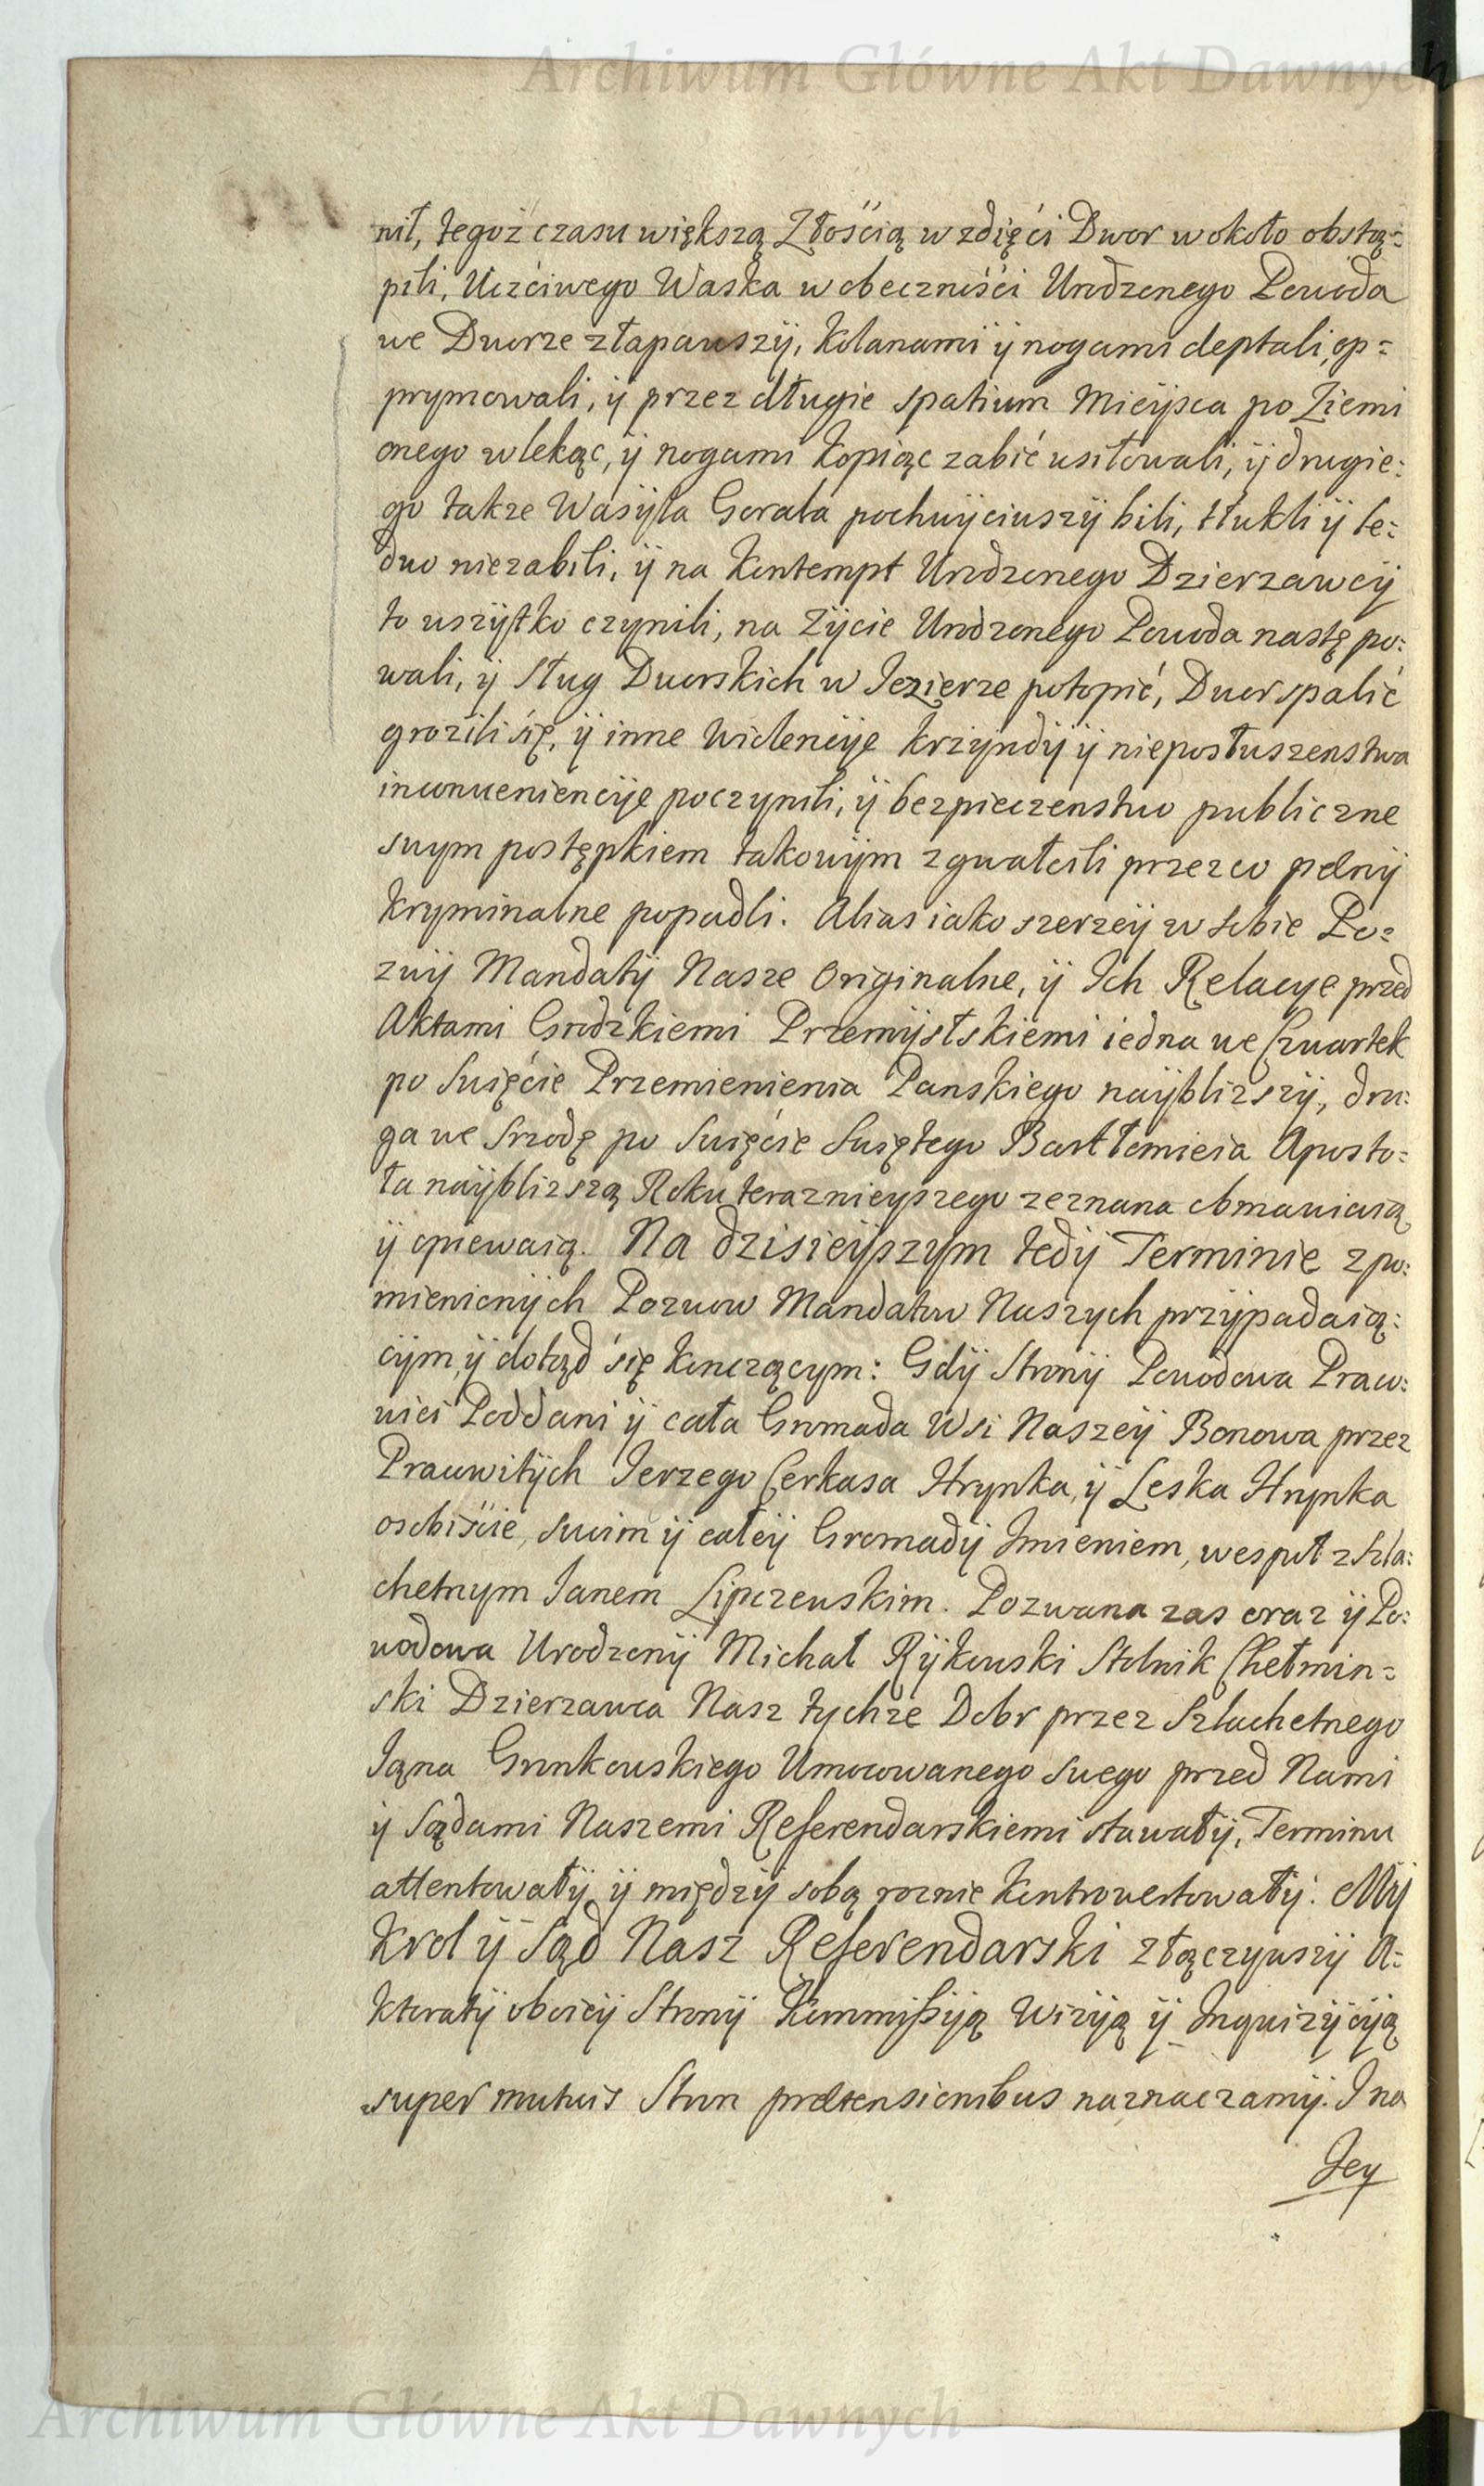 Archiwum Główne Akt Dawnych
nił, tegoż czasu większą Złością wzdięći Dwor wokoło obstą=
pili, Uczciwego Waska w obecznośći Urodzonego Powoda
we Dworze złapawszÿ, kolanami ÿ nogami deptali, op=
prymowali, ÿ przez długie spatium Mieÿsca po Ziemi
onego wlekąc, ÿ nogami kopiąc zabić usiłowali, ÿ drugie=
go takze Wasÿla Gorala pochwÿciwszÿ bili, tłukli ÿ le=
dwo niezabili, ÿ na kontempt Urodzonego Dzierzawcÿ
to wszÿtko czynili, na Zÿcie Urodzonego Powoda nastę po=
wali, ÿ sług Dworskich w Jezierze potopić, Dwor spalić
grozili się, ÿ inne wiolencÿe krzÿwdÿ ÿ nieposłuszenstwa
inconveniencÿe poczynili, ÿ bezpieczenstwo publiczne
swym postępkiem takowÿm zgwałcili przez co pœnÿ
kryminalne popadli. Alias iako szerzeÿ w sobie Po=
zwÿ Mandatÿ Nasze Originalne, ÿ Ich Relacye przed
Aktami Grodzkiemi Przemÿslskiemi iedna we Czwartek
po Swięcie Przemienienia Panskiego naÿblizszÿ, dru=
ga we Srzodę po Swięcie Swiętego Bartłomieia Aposto=
ła naÿblizszą Roku teraznieyszego zeznana obmawiaią
ÿ opiewaią. Na dzisieÿszym tedÿ Terminie z po=
mienionÿch Pozwow Mandatow Naszych przÿpadaią=
cÿm, ÿ dotąd się konczącym: Gdÿ Stronÿ Powodowa Praco=
wici Poddani ÿ cała Gromada Wsi Naszeÿ Bonowa przez
Pracowitÿch Jerzego Cerkasa Hrynka, ÿ Leska Hrynka
osobiście, swim ÿ całeÿ Gromadÿ Imieniem, wespuł z Szla=
chetnym Janem Lipczewskim. Pozwana zas oraz ÿ Po=
wodowa Urodzonÿ Michał Rÿkowski Stolnik Chełmin=
ski Dzierzawca Nasz tychze Dobr przez Szlachetnego
Jana Gronkowskiego Umocowanego swego przed Nami
ÿ Sądami Naszemi Referendarskiemi stawałÿ, Terminu
attentowałÿ ÿ międzÿ sobą roznie kontrovertowałÿ: Mÿ
Krol ÿ Sąd Nasz Referendarski złączywszÿ A=
ktoratÿ oboieÿ Stronÿ Kommissÿą Wizÿą ÿ Inquizÿcÿą
super mutuis Stron prætensionibus naznaczamÿ. I na
Jey
Archiwum Główne Akt Dawnych